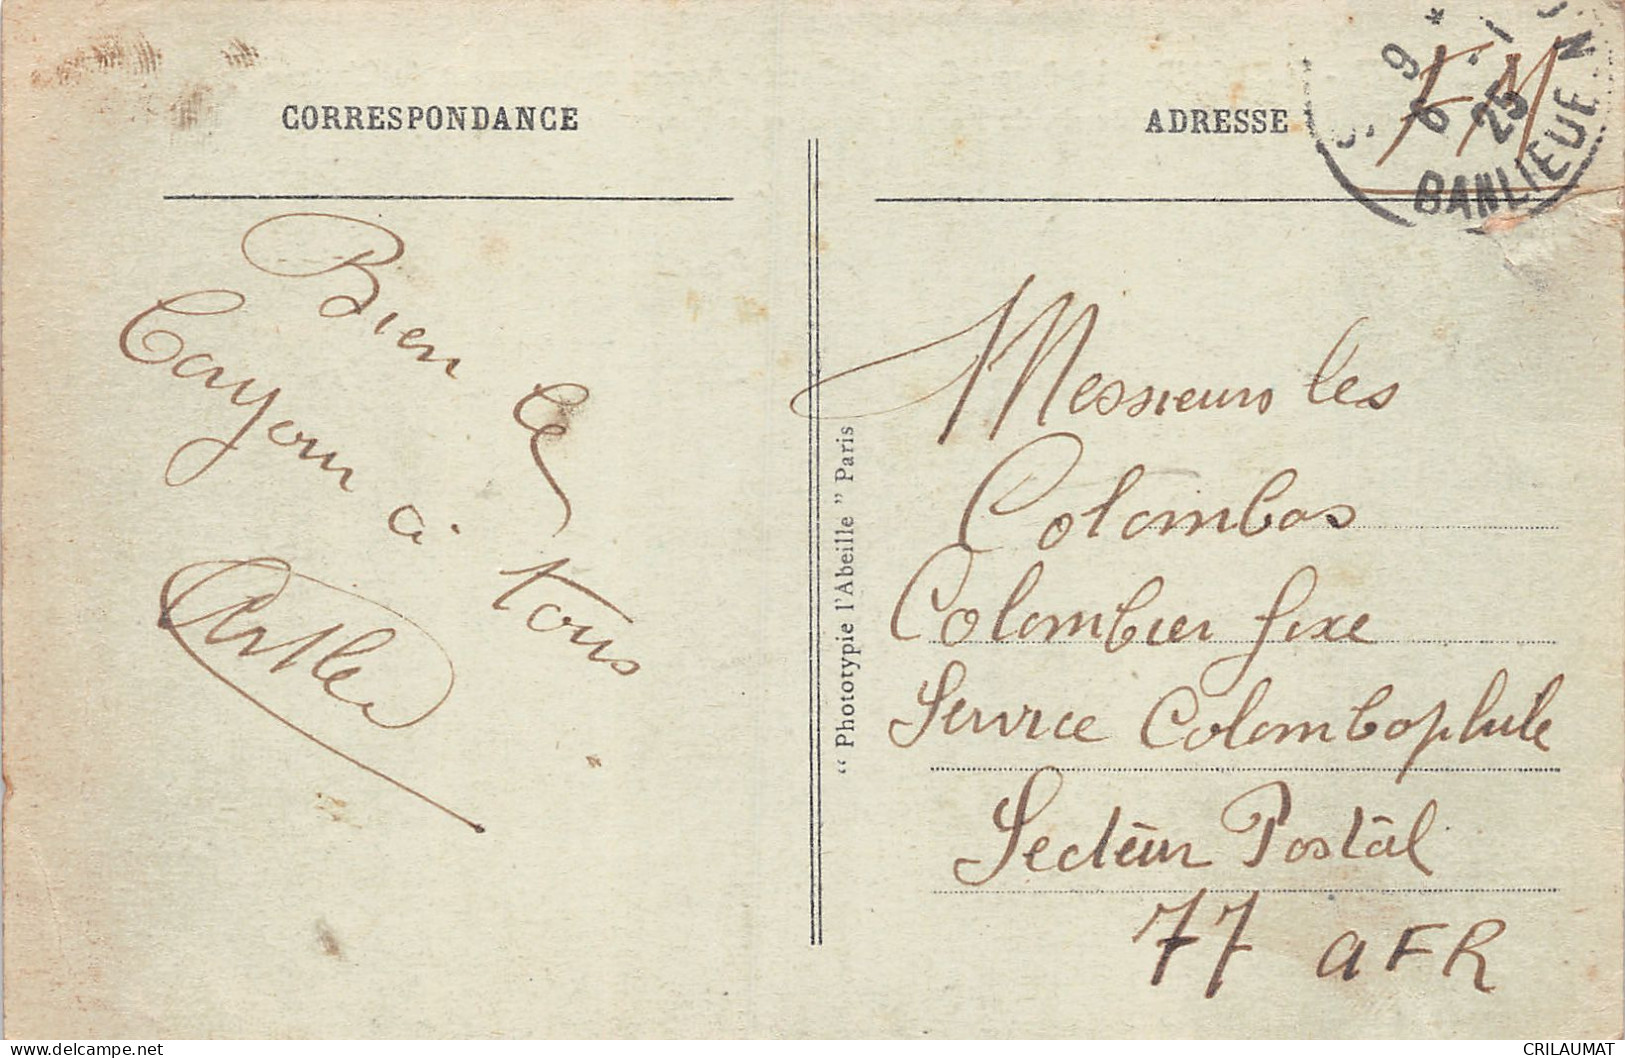 CORRESPONDANCE
Bien le
Cayou à tous
ADRESSE
FM
9 *
6 -1
25
BANLIEUE N
Messieurs les
Colombos
Colombier fixe
Service Colombophile
Secteur Postal
77 AFR
“ Phototypie l'Abeille ” Paris
delcampe.net
CRILAUMAT